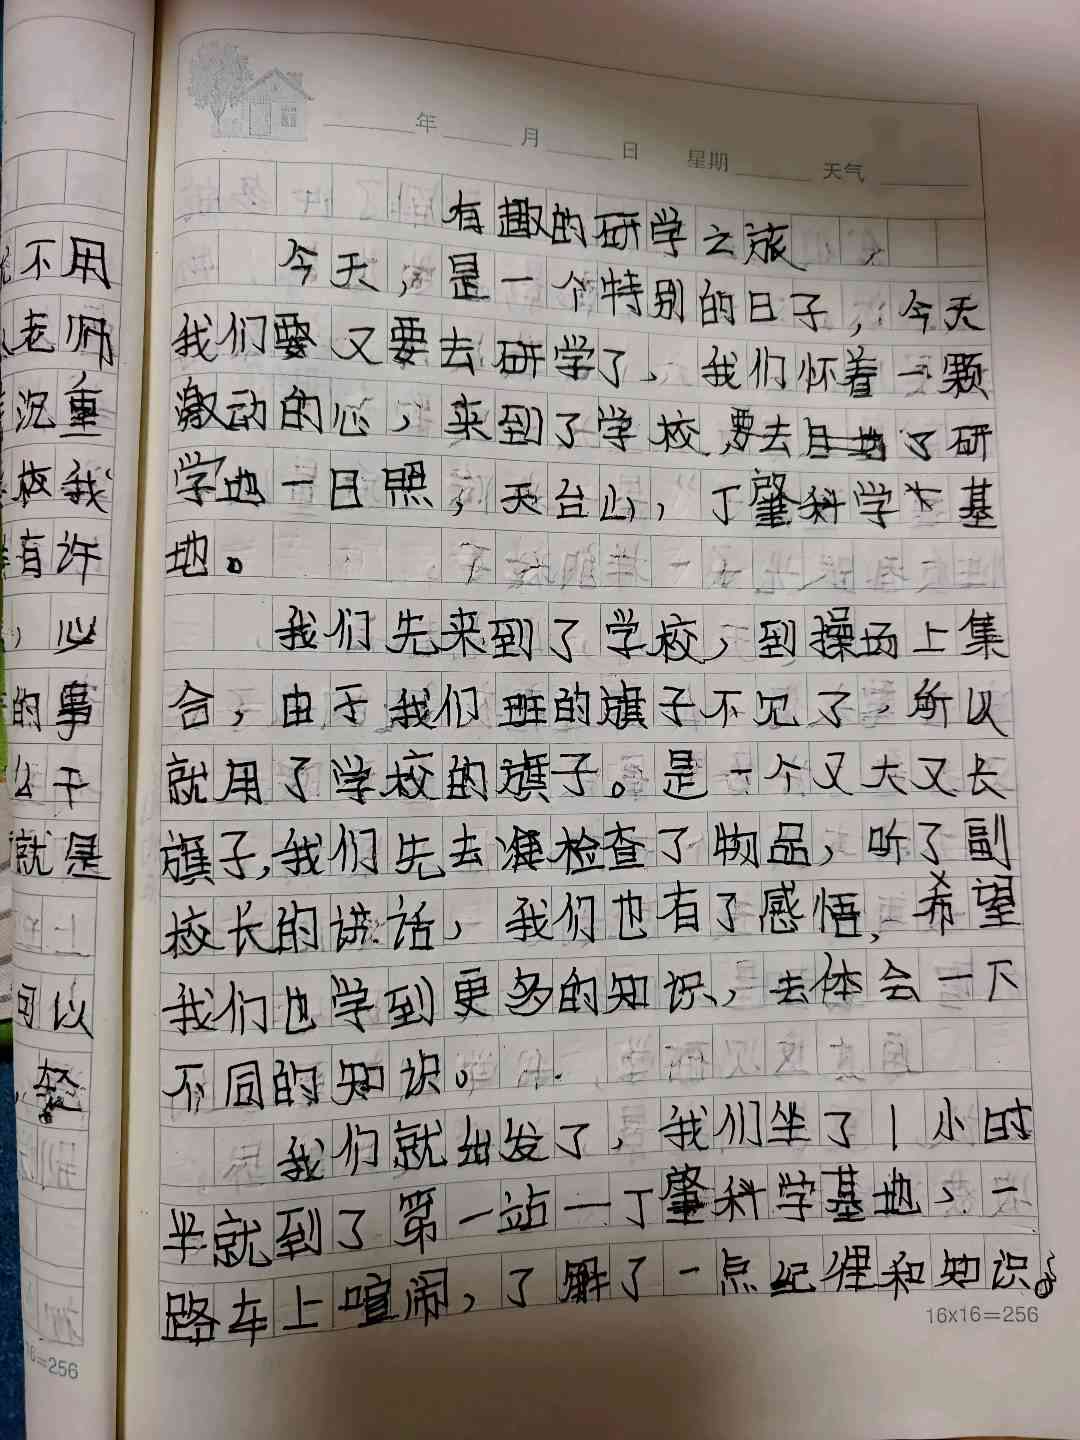 年 月 日 星期 天气
有趣的研学之旅
今天，是一个特别的日子，今天
我们要又要去研学了，我们怀着一颗
激动的心，来到了学校，要去了研
学地一日照，天台山，丁肇科学基
地。
我们先来到了学校，到操场上集
合，由于我们班的旗子不见了，所以
就用了学校的旗子。是一个又大又长
旗子，我们先去准检查了物品，听了副
校长的讲话，我们也有了感悟，希望
我们也学到更多的知识，去体会一下
不同的知识。
我们就出发了，我们坐了1小时
半就到了第一站一丁肇科学基地，一
路车上喧闹，了解了一点纪律和知识。
16x16=256
不用
老师
沉重
校我
有许
，心
的事
么干
就是
可以
16=256